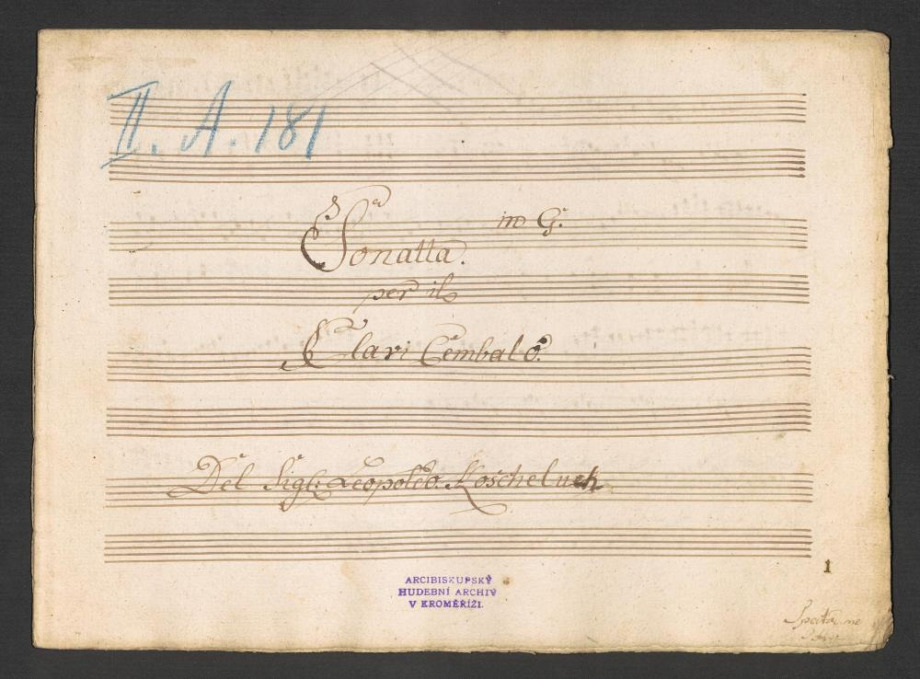 II. A. 181
in G.
Sonatta.
per il
Clari Cembalo.
Del Sigl: Leopoldo. Koscheluch
1
ARCIBISKUPSKÝ
HUDEBNÍ ARCHIV
V KROMĚŘÍŽI.